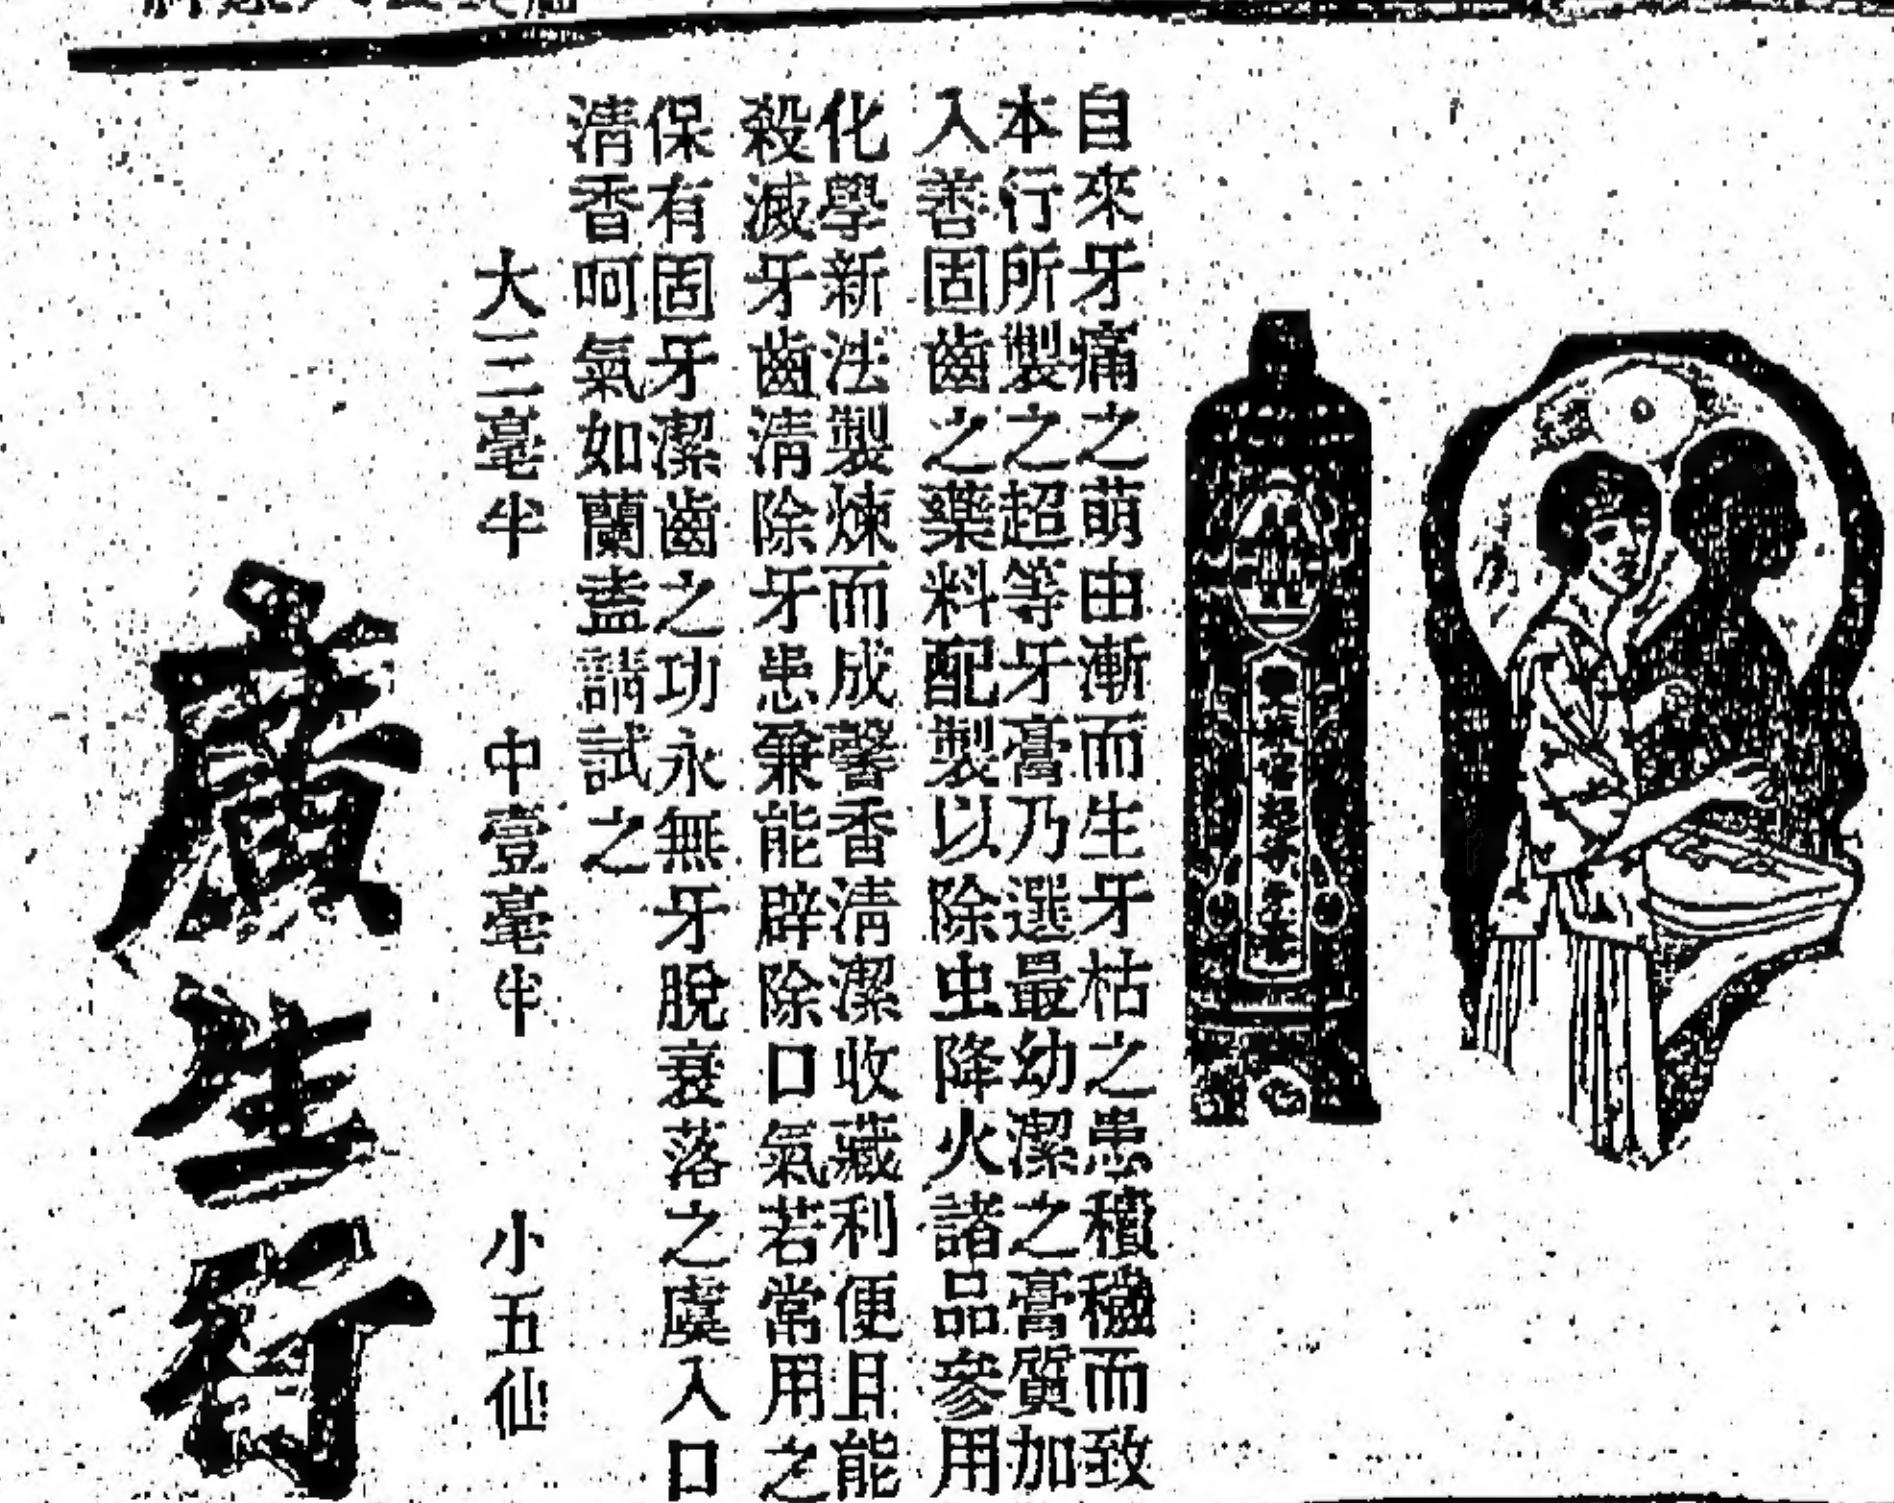 自來牙痛之萌由漸而生牙枯之患積穢而致
本行所製之超等牙膏乃選最幼潔之膏質加
入善固齒之藥料配製以除虫降火諸品參用
化學新法製煉而成馨香清潔收藏利便且能
殺滅牙齒清除牙患兼能辟除口氣若常用之
保有固牙潔齒之功永無牙脫衰落之虞入口
清香呵氣如蘭盍請試之
大三毫半　中壹毫半　小五仙
廣生行